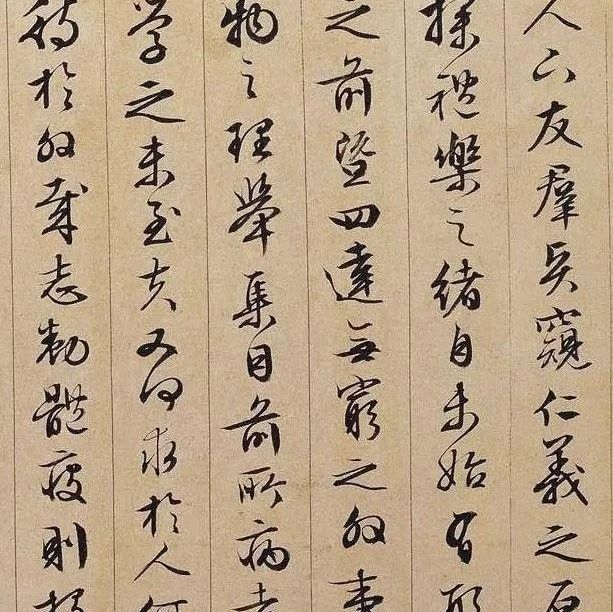 人下友羣吳窺仁義之原
探禮樂之緒自未始有形
之前暨四達無窮之外事
物之理舉集目前所病者
學之未至夫又何求於人何
待於外哉志勌體疲則投